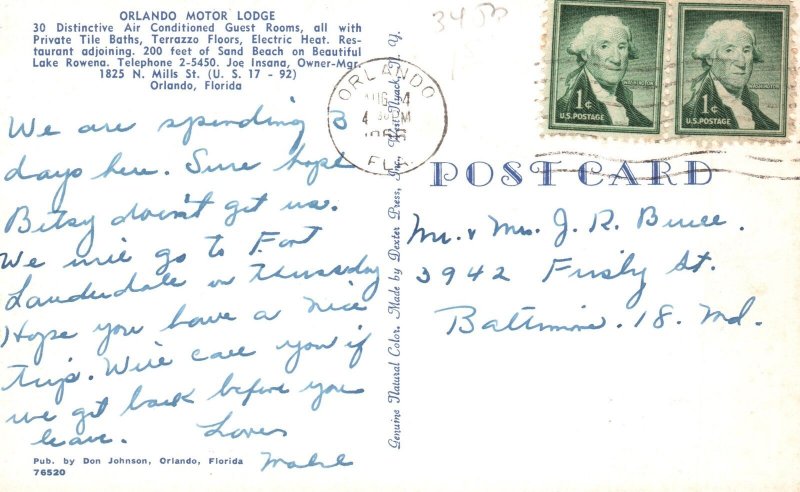 ORLANDO MOTOR LODGE
30 Distinctive Air Conditioned Guest Rooms, all with
Private Tile Baths, Terrazzo Floors, Electric Heat. Res-
taurant adjoining. 200 feet of Sand Beach on Beautiful
Lake Rowena. Telephone 2-5450. Joe Insana, Owner-Mgr.
1825 N. Mills St. (U. S. 17 - 92)
Orlando, Florida
We are spending 3
days here. Sure hope
Betsy doesn't get us.
We will go to Fort
Lauderdale on Thursday
Hope you have a nice
trip. We'll call you if
we get back before you
leave. Love
Mabel
Pub. by Don Johnson, Orlando, Florida
76520
Genuine Natural Color. Made by Dexter Press, Inc., West Nyack, N. Y.
3450
ORLANDO
AUG 14
4 PM
FLA.
1¢
U.S. POSTAGE
WASHINGTON
1¢
U.S. POSTAGE
WASHINGTON
POST CARD
Mr. & Mrs. J. R. Bruce.
3942 St.
Baltimore. 18. Md.